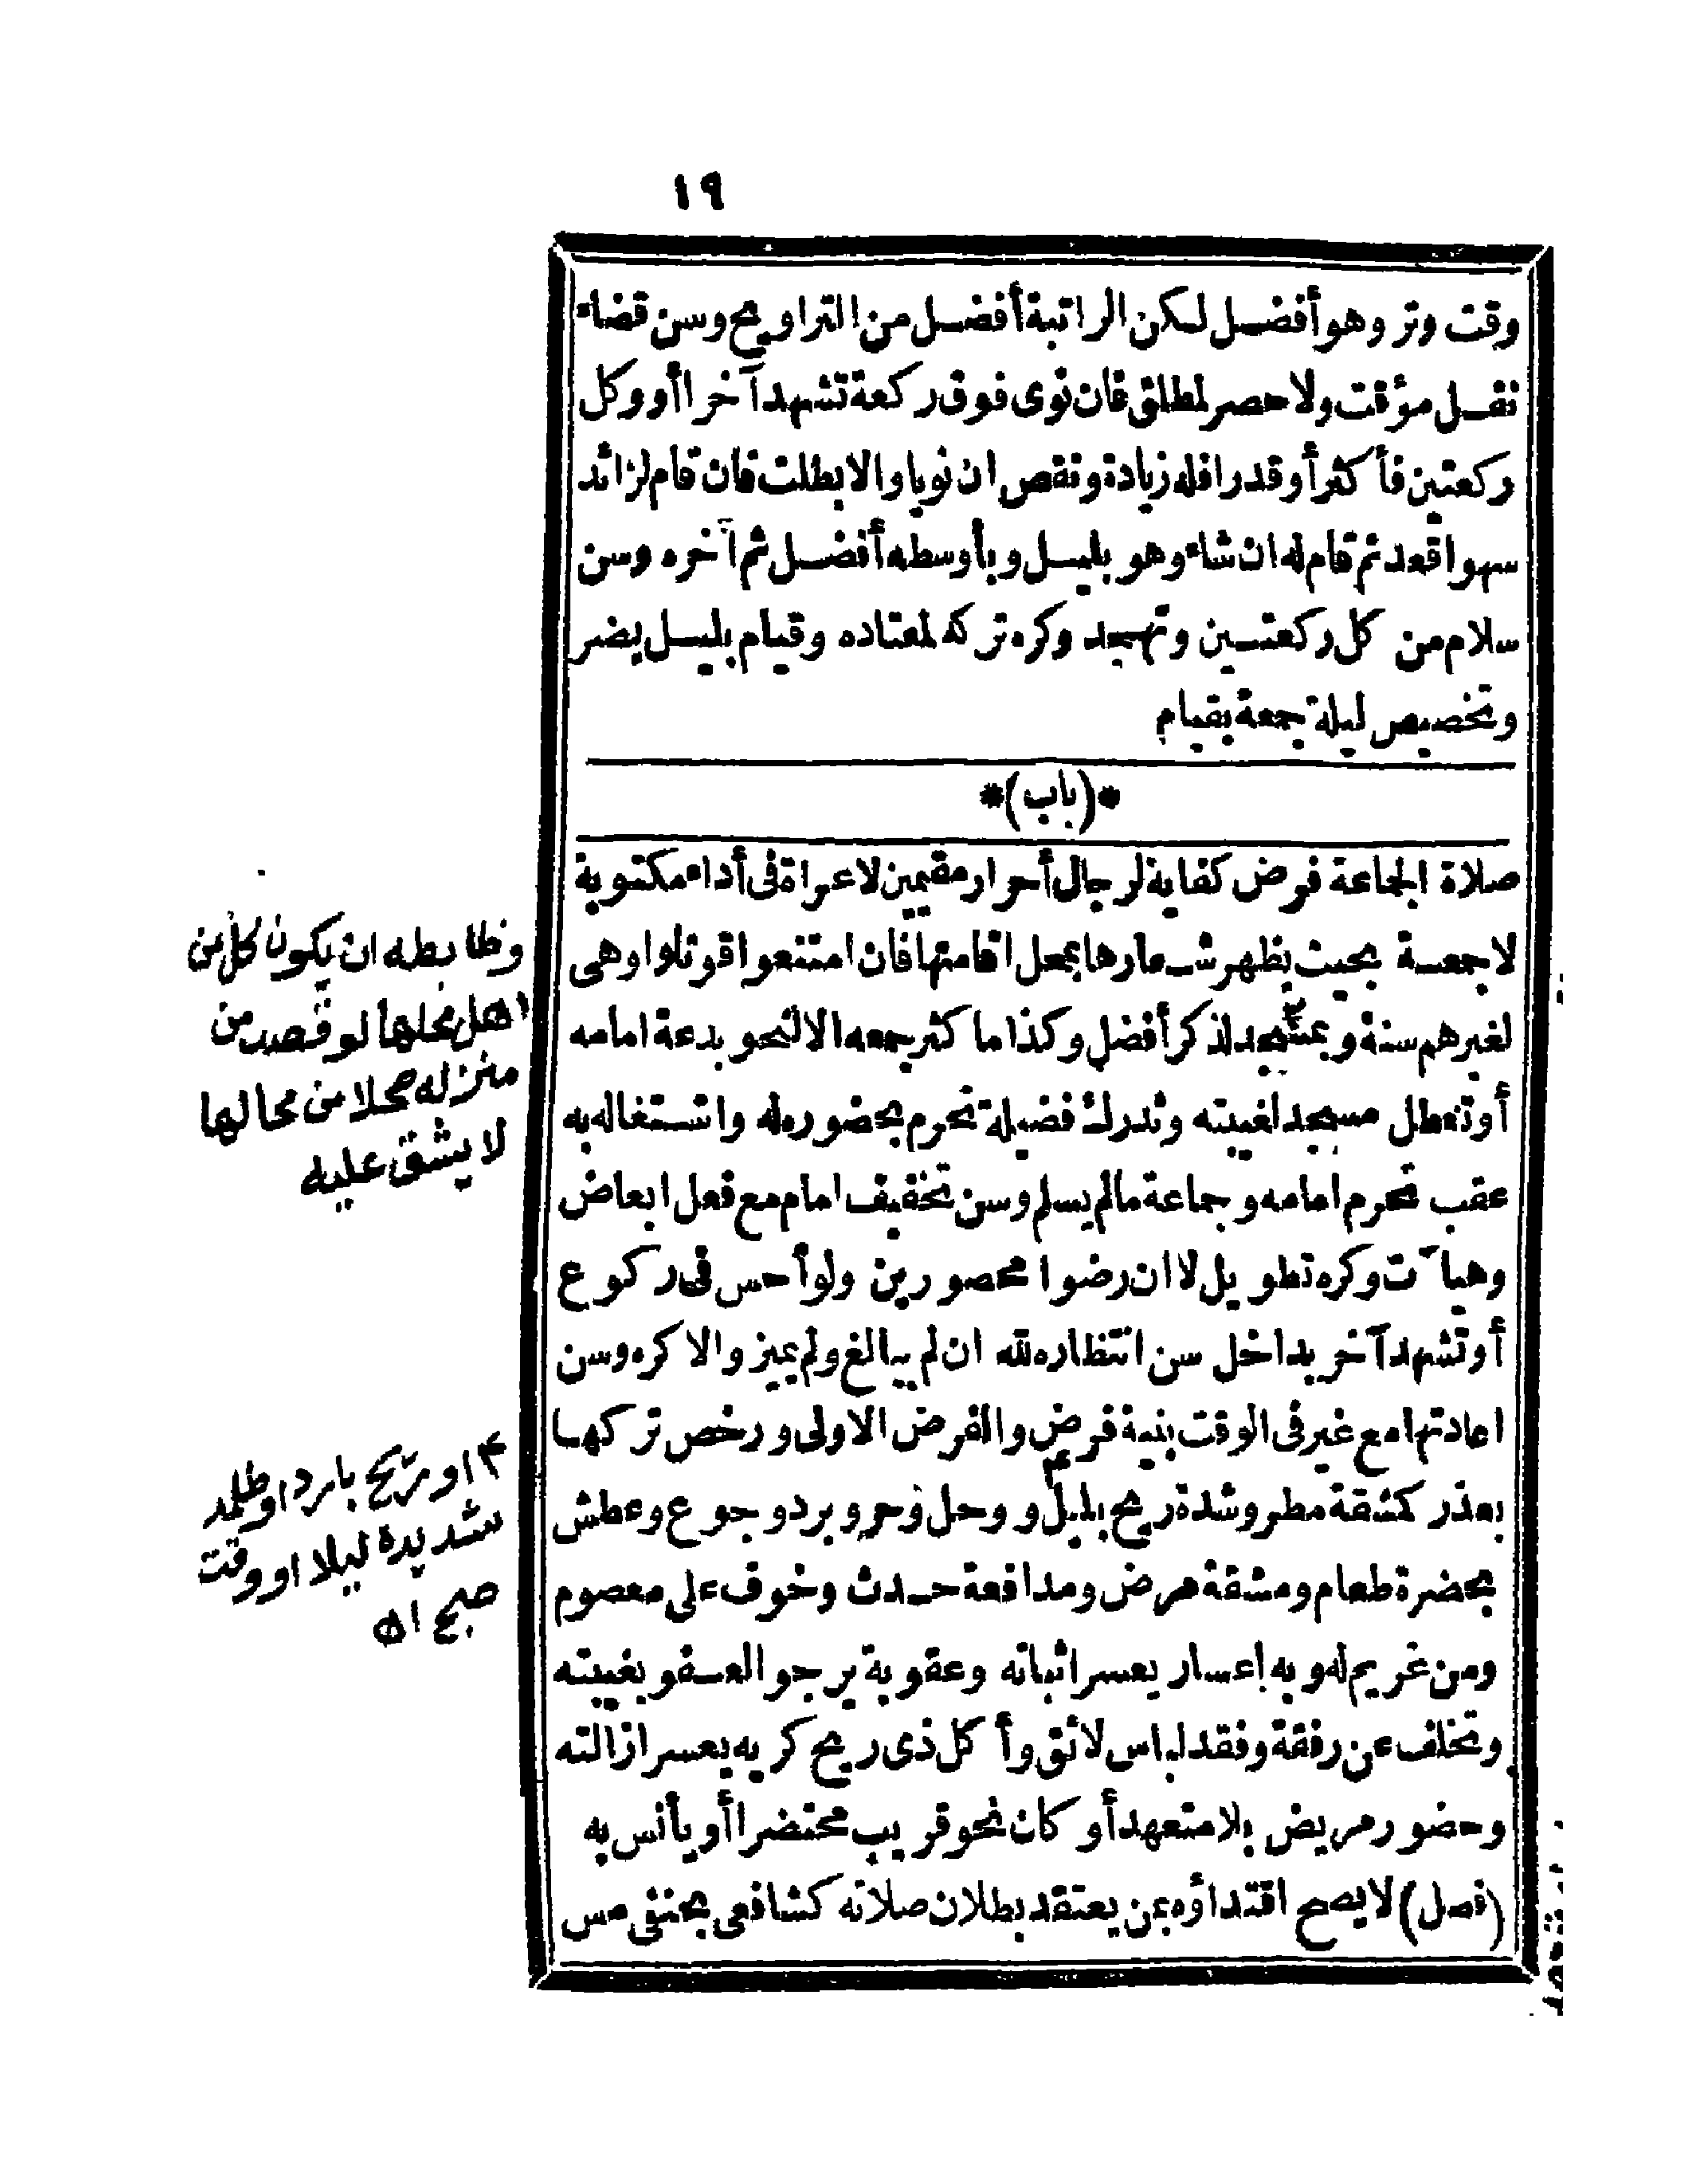 ١٩
وقت وتر وهو أفضل لكن الراتبة أفضل من التراويح وسن قضاء
نفل مؤقت ولا حصر لمطلق فان نوى فوق ركعة تشهد آخرا أو وكل
ركعتين فأكثر أو قدرا فله زيادة ونقص ان نويا والا بطلت فان قام لزائد
سهوا قعد ثم قام له ان شاء وهو بليل وبأوسطه أفضل ثم آخره وسن
سلام من كل ركعتين وتهجد وكره تركه لمعتاده وقيام بليل يضر
وتخصيص ليلة جمعة بقيام
*(باب)*
صلاة الجماعة فرض كفاية لرجال أحرار مقيمين لا عراة فى أداء مكتوبة
لا جمعة بحيث يظهر شعارها بمحل اقامتها فان امتنعوا قوتلوا وهى
لغيرهم سنة وبمسجد لذكر أفضل وكذا ما كثر جمعه الا لنحو بدعة امامه
أو تعطل مسجد لغيبته وتدرك فضيلة تحرم بحضوره له واشتغاله به
عقب تحرم امامه وجماعة مالم يسلم وسن تخفيف امام مع فعل ابعاض
وهيآت وكره تطويل لا ان رضوا محصورين ولو أحس فى ركوع
أو تشهد آخر بداخل سن انتظاره لله ان لم يبالغ ولم يميز والا كره وسن
اعادتها مع غير فى الوقت بنية فرض والفرض الاولى ورخص تركها
بعذر كشقة مطر وشدة ريح بليل و وحل وحر وبرد وجوع وعطش
بحضرة طعام ومشقة مرض ومدافعة حدث وخوف على معصوم
ومن غريم له وبه اعسار يعسر اثباته وعقوبة يرجو العفو بغيبته
وتخلف عن رفقة وفقد لباس لائق وأكل ذى ريح كريه يعسر ازالته
وحضور مريض بلا متعهد أو كان نحو قريب محتضرا أو يأنس به
(فصل) لا يصح اقتداؤه بمن يعتقد بطلان صلاته كشافعى بحنفى مس
وظابطه ان يكون كل من
اهل محلها لو قصد من
منزله محلا من محالها
لا يشق عليه
او ريح بارد او ظلمة
شديدة ليلا او وقت
صبح اه